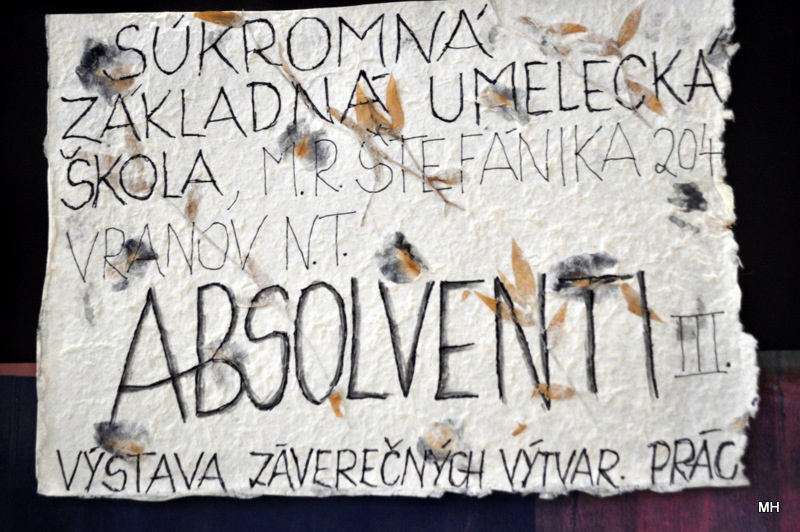 SÚKROMNÁ
ZÁKLADNÁ UMELECKÁ
ŠKOLA, M.R. ŠTEFÁNIKA 204
VRANOV N.T.
ABSOLVENTI III.
VÝSTAVA ZÁVEREČNÝCH VÝTVAR. PRÁC
MH